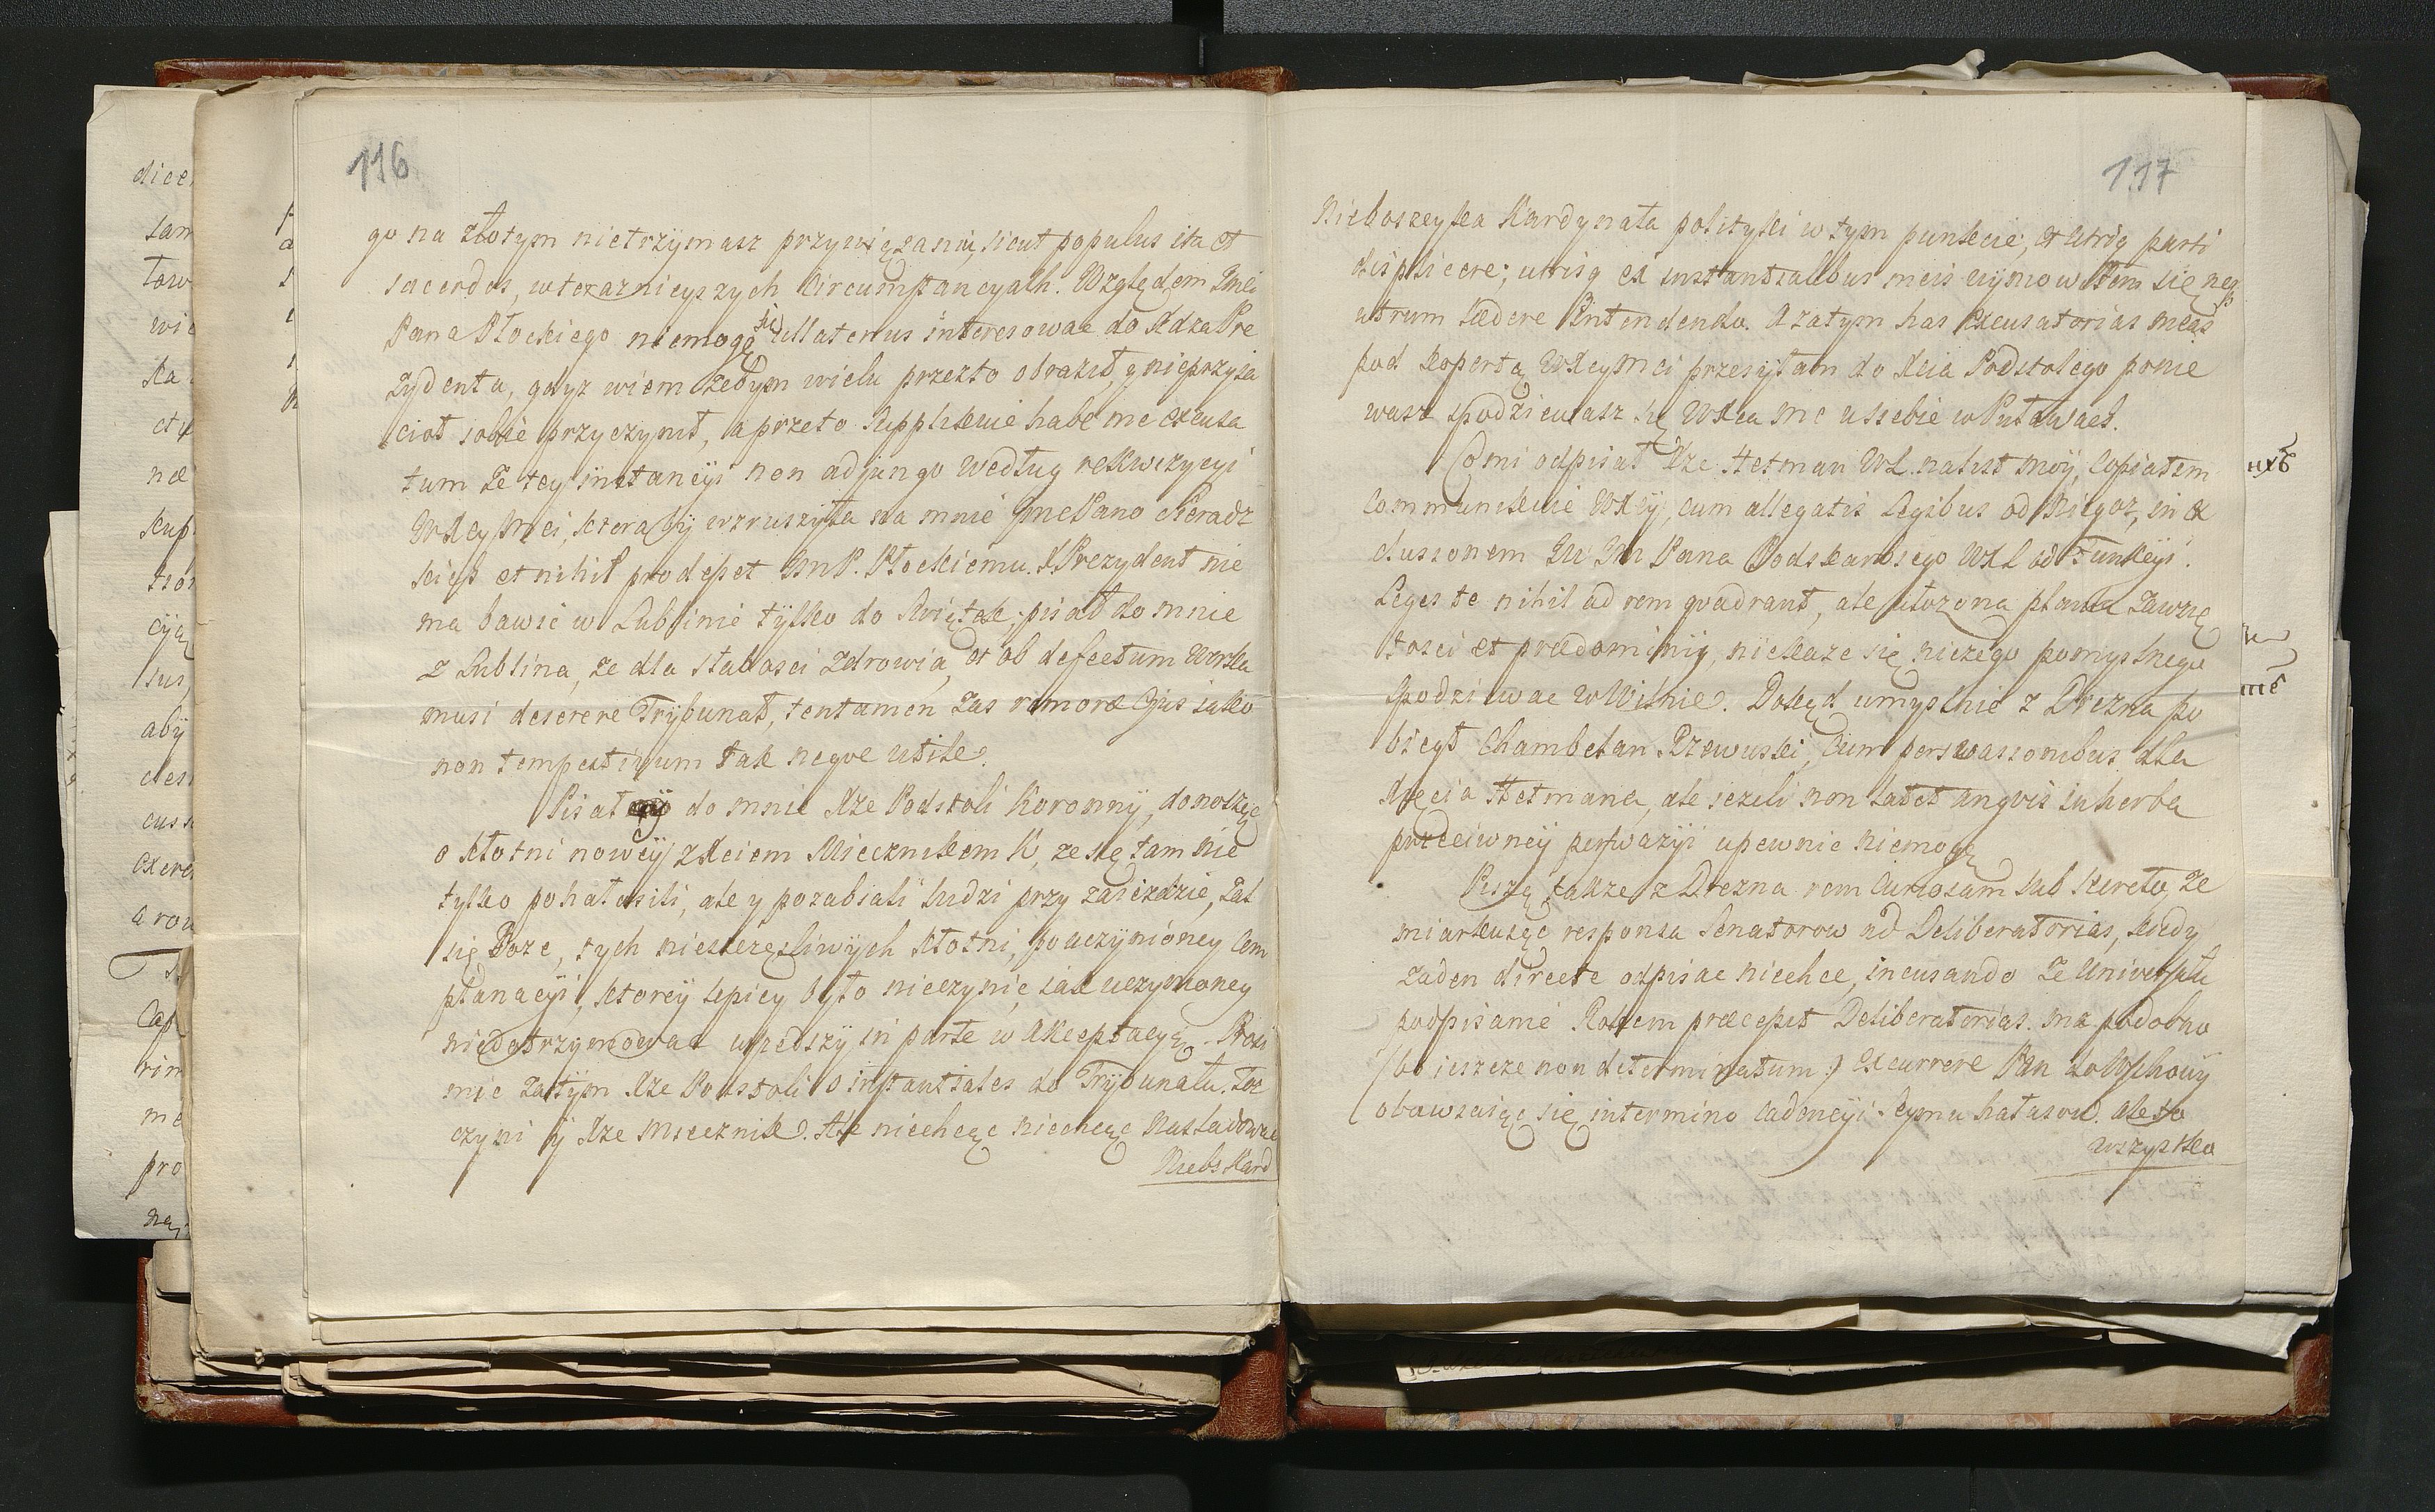 116
go na złotym nietrzymasz przywiązaniu, sicut populus ita et
sacerdos, wteraznieyszych Circumstancyach. Względem Jmci
Pana Płockiego niemogę się ullatenus interesowac do Xdza Pre
zydenta, gdyz wiem zebym wielu przezto obraził, y nieprzyia
cioł sobie przyczynił, a przeto supplikuie habe me excusa
tum ze tey instancyi non adjungo według rekwizycyi
WXcy Mci, ktoraby wzruszyła na mnie Jme Pano Sieradz
kięs et nihil prodesset JmP. Płockiemu. X Prezydent nie
ma bawic w Lublinie tylko do Swiątek; pisał do mnie
z Lublina, ze dla słabosci zdrowia, et ob defectum worka
musi deserere Trybunał, tentamen zas remoræ Ejus iako
non tempestivum tak neqve utile.
Pisał do mnie Xze Podstoli Koronny, donosząc
o kłotni nowey z Xciem Miecznikem K, ze się tam nie
tylko pohałasili, ale y pozabiali ludzi przy zaiezdzie, zal
się Boze, tych nieszczęsliwych kłotni, po uczynioney Com
planacyi, ktorey lepiey było nieczynic, iak uczynioney
niedotrzymowac wszedszy in parte w Akceptacyę. Prosi
mie zatym Xze Podstoli o instantiales do Trybunału. Toz
czyni y Xze Miecznik. Ale niechcąc niechcąc nasladowac
Niebs Kard
117
Nieboszczyka Kardynała polityki w tym punkcie, et utriq parti
displicere; utrisq ex instantialibus meis wymowiłem się neq
utrum lædere intendendo. A zatym has excusatorias meas
pod kopertą WXcy Mci przesyłam do Xcia Podstolego ponie
wasz spodziewasz się WXca Mc u siebie w Puławach.
Co mi odpisał Xze Hetman WL. na list moy, Copiatem
communikuie WXcy, cum allegatis Legibus od Niegoz, in ex
clusionem JW Jm Pana Podskarbiego WXL ad Funkcyi.
Leges te nihil ad rem qvadrant, ale ułozona planta zawzię
tosci et prædominij, niekaze się niczego pomyslnego
spodziewac w Wilnie. Dokąd umyslnie z Drezna po
biegł Chambelan Rzewuski, cum perswasionibus dla
Xięcia Hetmana, ale iezeli non latet angvis in herba
przeciwney perswazyi upewnic niemogę
Piszą takze z Drezna rem Curiosam sub secreto, ze
miarkuiąc responsa Senatorow ad Deliberatorias, kiedy
zaden directe odpisac niechce, incusando ze Uniwersału
podpisanie Rokem præcessit Deliberatorias. ma podobno
(bo ieszcze non determinatum) excurrere Pan do Wschowy
obawiaiąc się in termino cadencyi Seymu hałasow. ale to
wszystko